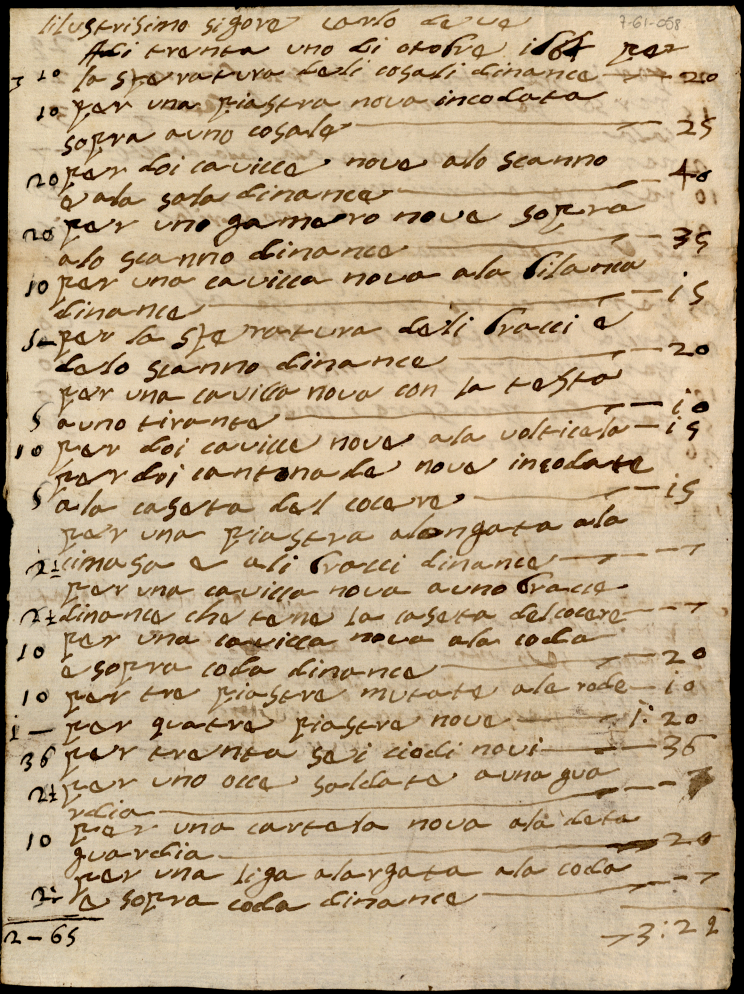 Iilustrisimo sigore carlo de ue
7-61-058
Adi trenta uno di otobre 1664 per
10 la speratura deli cosali dinance 20
10 per una piastra nova incodata
sopra a uno cosale 25
20 per doi cavicce nove alo scanno
e ala sala dinance 40
20 per uno gamero nove sopra
alo scanno dinance 35
10 per una cavicca nova ala bilanca
dinance i5
per la speratura deli bracci e
delo scanno dinance 20
per una cavicca nova con la testa
5 a uno tirante io
10 per doi cavicce nove ala volticela i5
per doi cantonade nove incodate
5 ala caseta del cocere i5
per una piastra alongata ala
2½ cimasa e ali bracci dinance 7
per una cavicca nova a uno bracce
2½ dinance che tene la caseta del cocere 7
10 per una cavicca nova ala coda
e sopra coda dinance 20
10 per tre piastre mutate ale rode io
i — per quatre piastre nove i: 20
36 per trenta sei ciodi novi 36
2½ per uno occe saldate a una gua
rdia 7
10 per una cartela nova ala deta
guardia 20
per una liga alargata ala coda
2½ e sopra coda dinance 7
2 — 65 3:22